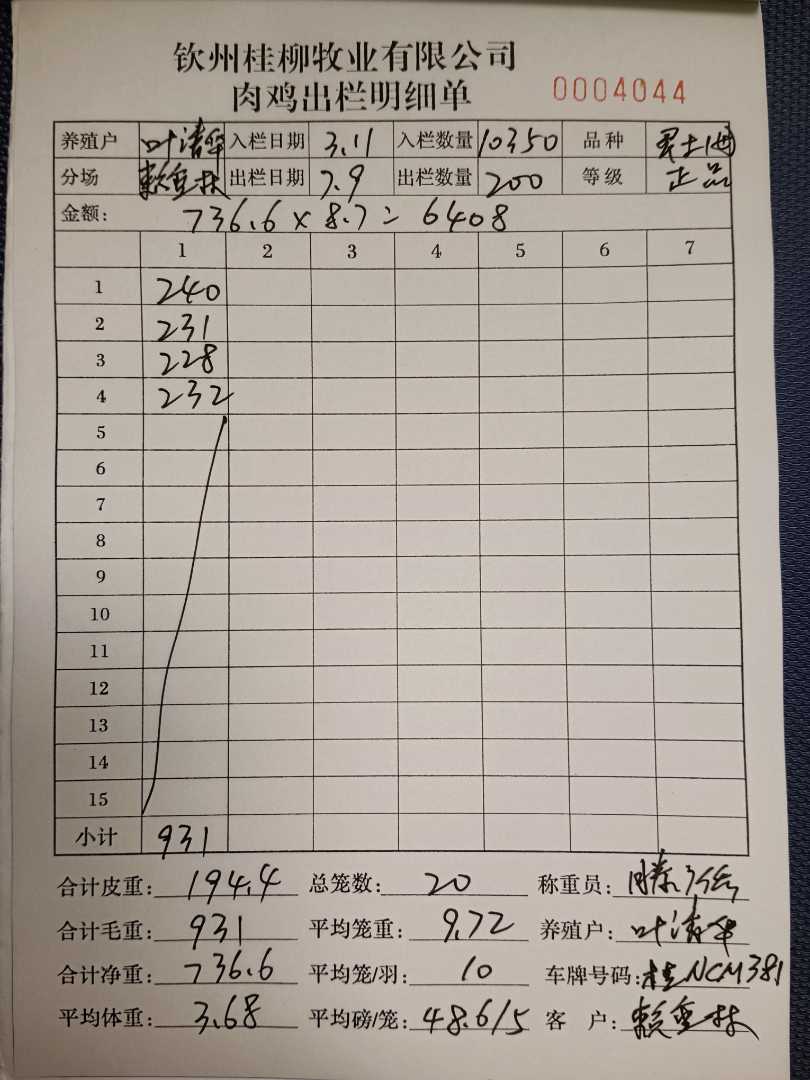 钦州桂柳牧业有限公司
肉鸡出栏明细单 0004044
养殖户 叶清华 入栏日期 3.11 入栏数量 10350 品种
分场 赖 林 出栏日期 7.9 出栏数量 200 等级 正品
金额: 736.6 x 8.7 = 6408
1 2 3 4 5 6 7
1 240
2 231
3 228
4 232
5
6
7
8
9
10
11
12
13
14
15
小计 931
合计皮重: 194.4 总笼数: 20 称重员:
合计毛重: 931 平均笼重: 9.72 养殖户: 叶清华
合计净重: 736.6 平均笼/羽: 10 车牌号码: 桂NCM381
平均体重: 3.68 平均磅/笼: 48.6/5 客 户: 赖 林